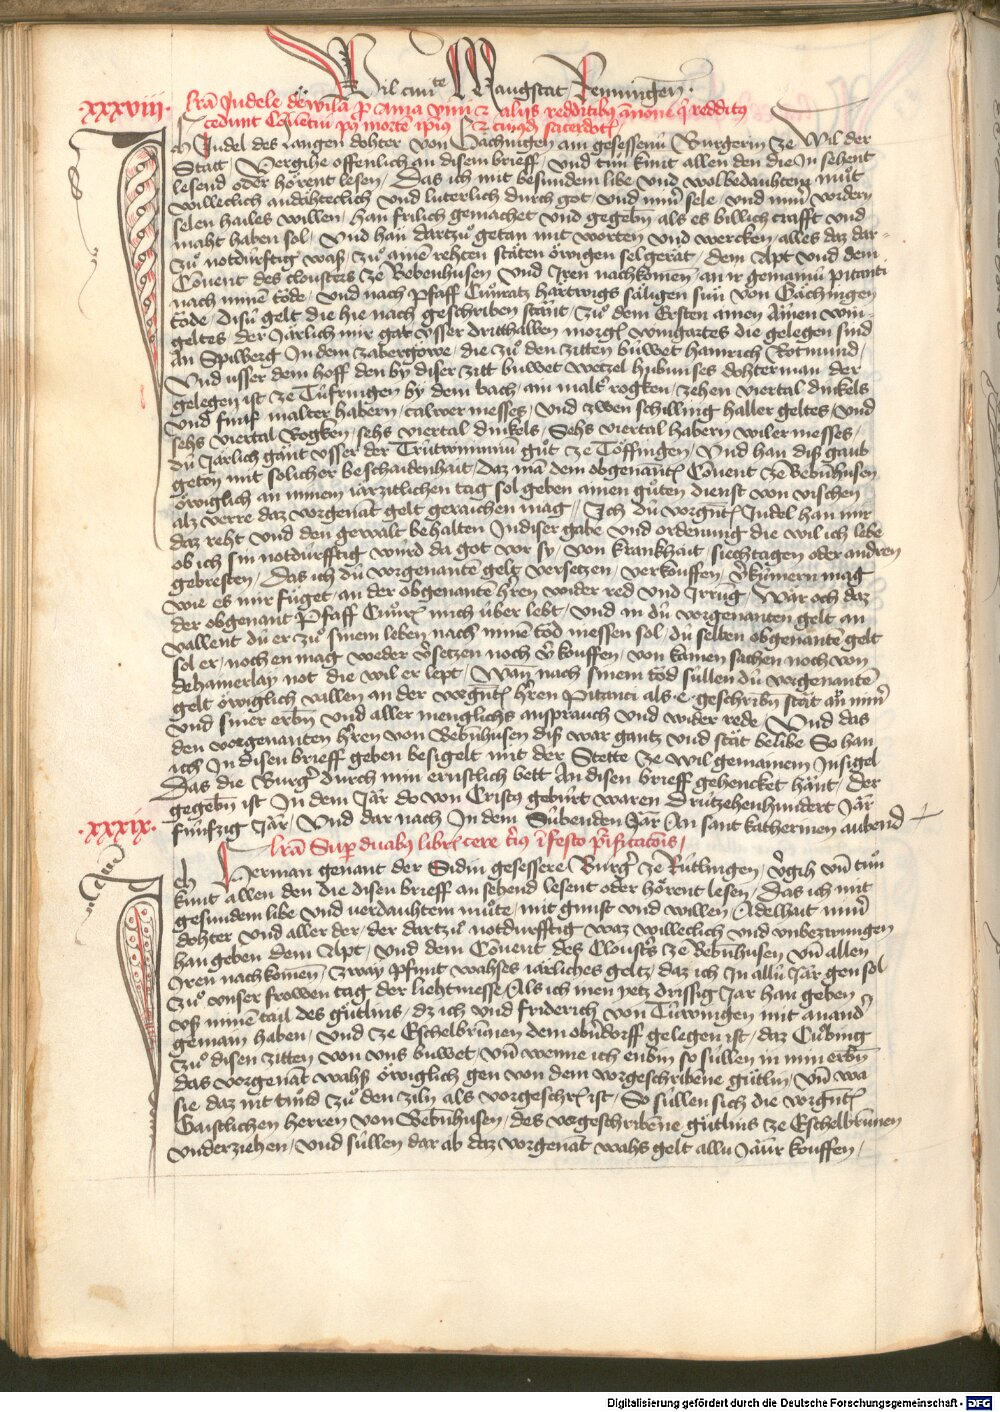 Wil ciuite Maugstat Renningen.
xxxviii. lrā Judele de wila p̄ ama vini ⁊ alijs redditibus annone q̄ redditus
cedunt Conuentui p9 mortē ip̄ius ⁊ cuiusd sacerdotis
Ich Judel des Langen dohter von Gächingen ain gesessenů Burgerin ze Wil der
Statt, Vergihe offenlich an disem brieff, vnd tůn kunt allen den die In sehent
lesend oder hőrent lesen, Das ich mit besundem libe vnd wolbedauhtem můt
willeclich andähteclich vnd luterlich durch got, vnd miner sele, vnd miner vordern
selen hailes willen, han frilich gemachet vnd gegebn als es billich crafft vnd
maht haben sol, Vnd han dartzů getan mit worten vnd wercken, alles daz dar-
zů notdurftig waß, zů ainē rehten stäten őwigen selgerät, dem Apt vnd dem
Cōuent des clousters ze Bebenhusen, vnd Iren nachkomen, an ir gemainū pitantz
nach minē tőde, vnd nach Pfaff Cůnratz härtwigs säligen sun von Gächingen
tőde, disů gelt die hie nach geschriben stänt, Zů dem Ersten ainen Aimen win-
geltes, der Järlich mir gat vsser dritthalben morgē wingartes die gelegen sind
An Spilberg In dem zabergöwe, die zů den zitten buwet hainrich Rotmund,
Vnd usser dem hoff den by diser zitt buwet wetzel hubnuses dohterman der
gelegen ist ze Tüfringen by dem bach, ain maltr rogken, zehen viertal dinkels
vnd funf malter habern, calwer messes, vnd zwen schilling haller geltes, vnd
sehs viertal Rogken, sehs viertal dinkels, Sehs viertal habern wiler messes,
dů Järlich gänt vsser der Trutwininů gůt ze Tőffingen, Vnd han diß gaub
geton mit solicher beschaidenhait, daz mā dem obgenantē Cōuent ze Bebēhusen
őwiglich an minem iärzitlichen tag sol geben ainen gůten dienst von vischen
alz verre daz vorgenāt gelt geraichen mag, Ich dů vorgnt Judel han mir
daz reht vnd den gewalt behalten In diser gabe vnd ordenung die wil ich lebe
ob ich sin notdurfftig wurd da got vor sy, von krankhait, siechtagen oder andren
gebresten, Das ich dů vorgenantē gelt versetzen, verkouffen, v̄kumern mag
wie es mir fůget, an der obgenantē hren wider red vnd Irrung, Wär och daz
der obgenant Pfaff Cůnr mich über lebt, vnd in dů vorgenanten gelt an
vallent dů er zů sinem leben nach minē tőd niessen sol, dů selben obgenantē gelt
sol er, noch en mag weder v̄setzen noch v̄kouffen, von kainen sachen noch von
dehainerlay not die wil er lept, Wan nach sinem tőd sullen dů vorgenantē
gelt őwiglich vallen an der vorgnt hren Pitanci als e, geschribn stät an miner
vnd siner erbn vnd aller menglichs ansprauch vnd wider rede, Vnd das
den vorgenanten hren von Bebnhusen diß war gantz vnd stät belibe So han
ich In disen brieff geben besigelt mit der Stette ze Wil gemainem Insigel
Das die Burger durch min ernstlich bett An disen brieff gehencket hänt, Der
gegebn ist In dem Jär do von Cristz geburt waren Drützehenhundert Jär
funfzig Jär, Vnd dar nach In dem Subenden Jär An sant katherinen aubend
.xxxix. lrā Sup duabus libris cere t̄ius ī festo p̄ificacōis,
Ich Herman genant der Sidin gesessere Burger ze Rutlingen, v̄gih vn̄ tůn
kunt allen den die disen brieff an sehend lesent oder hőrent lesen, Das ich mit
gesundem libe vnd uerdauhtem můte, mit gunst vnd willen, Adelhait miner
dohter vnd aller der, der dartzů notdurfftig waz willeclich vnd vnbezwungen
han geben dem Apt, vnd dem Cōuent des Clousters ze Bebnhusen, vn̄ allen
Iren nachkomen, zway pfunt wahses iärliches geltz, daz ich In allů Jär gen sol
zů vnser frowen tag der liehtmesse, Als ich inen yetz drissig Jar han geben
vß minē tail des gütlins, dz ich vnd friderich von Tüwingen mit anandr
gemain haben, vnd ze Eschelbrunen dem obndorff gelegen ist, daz Cůbing
zů disen zitten von vns buwet, vn̄ wenne ich enbin so sullen in min erbn
das vorgenāt wahß őwiglich gen von dem vorgeschribene gütlin, vn̄ wa
sie daz nit tund zů den ziln als vorgeschr ist, So sullen sich die vorgnt
Gaistlichen herren von Bebnhusen, des vorgeschribene gütlins ze Eschelbrunen
vnderziehen, vnd sullen dar ab daz vorgenāt wahs gelt allu Jäur kouffen,
Digitalisierung gefördert durch die Deutsche Forschungsgemeinschaft - DFG